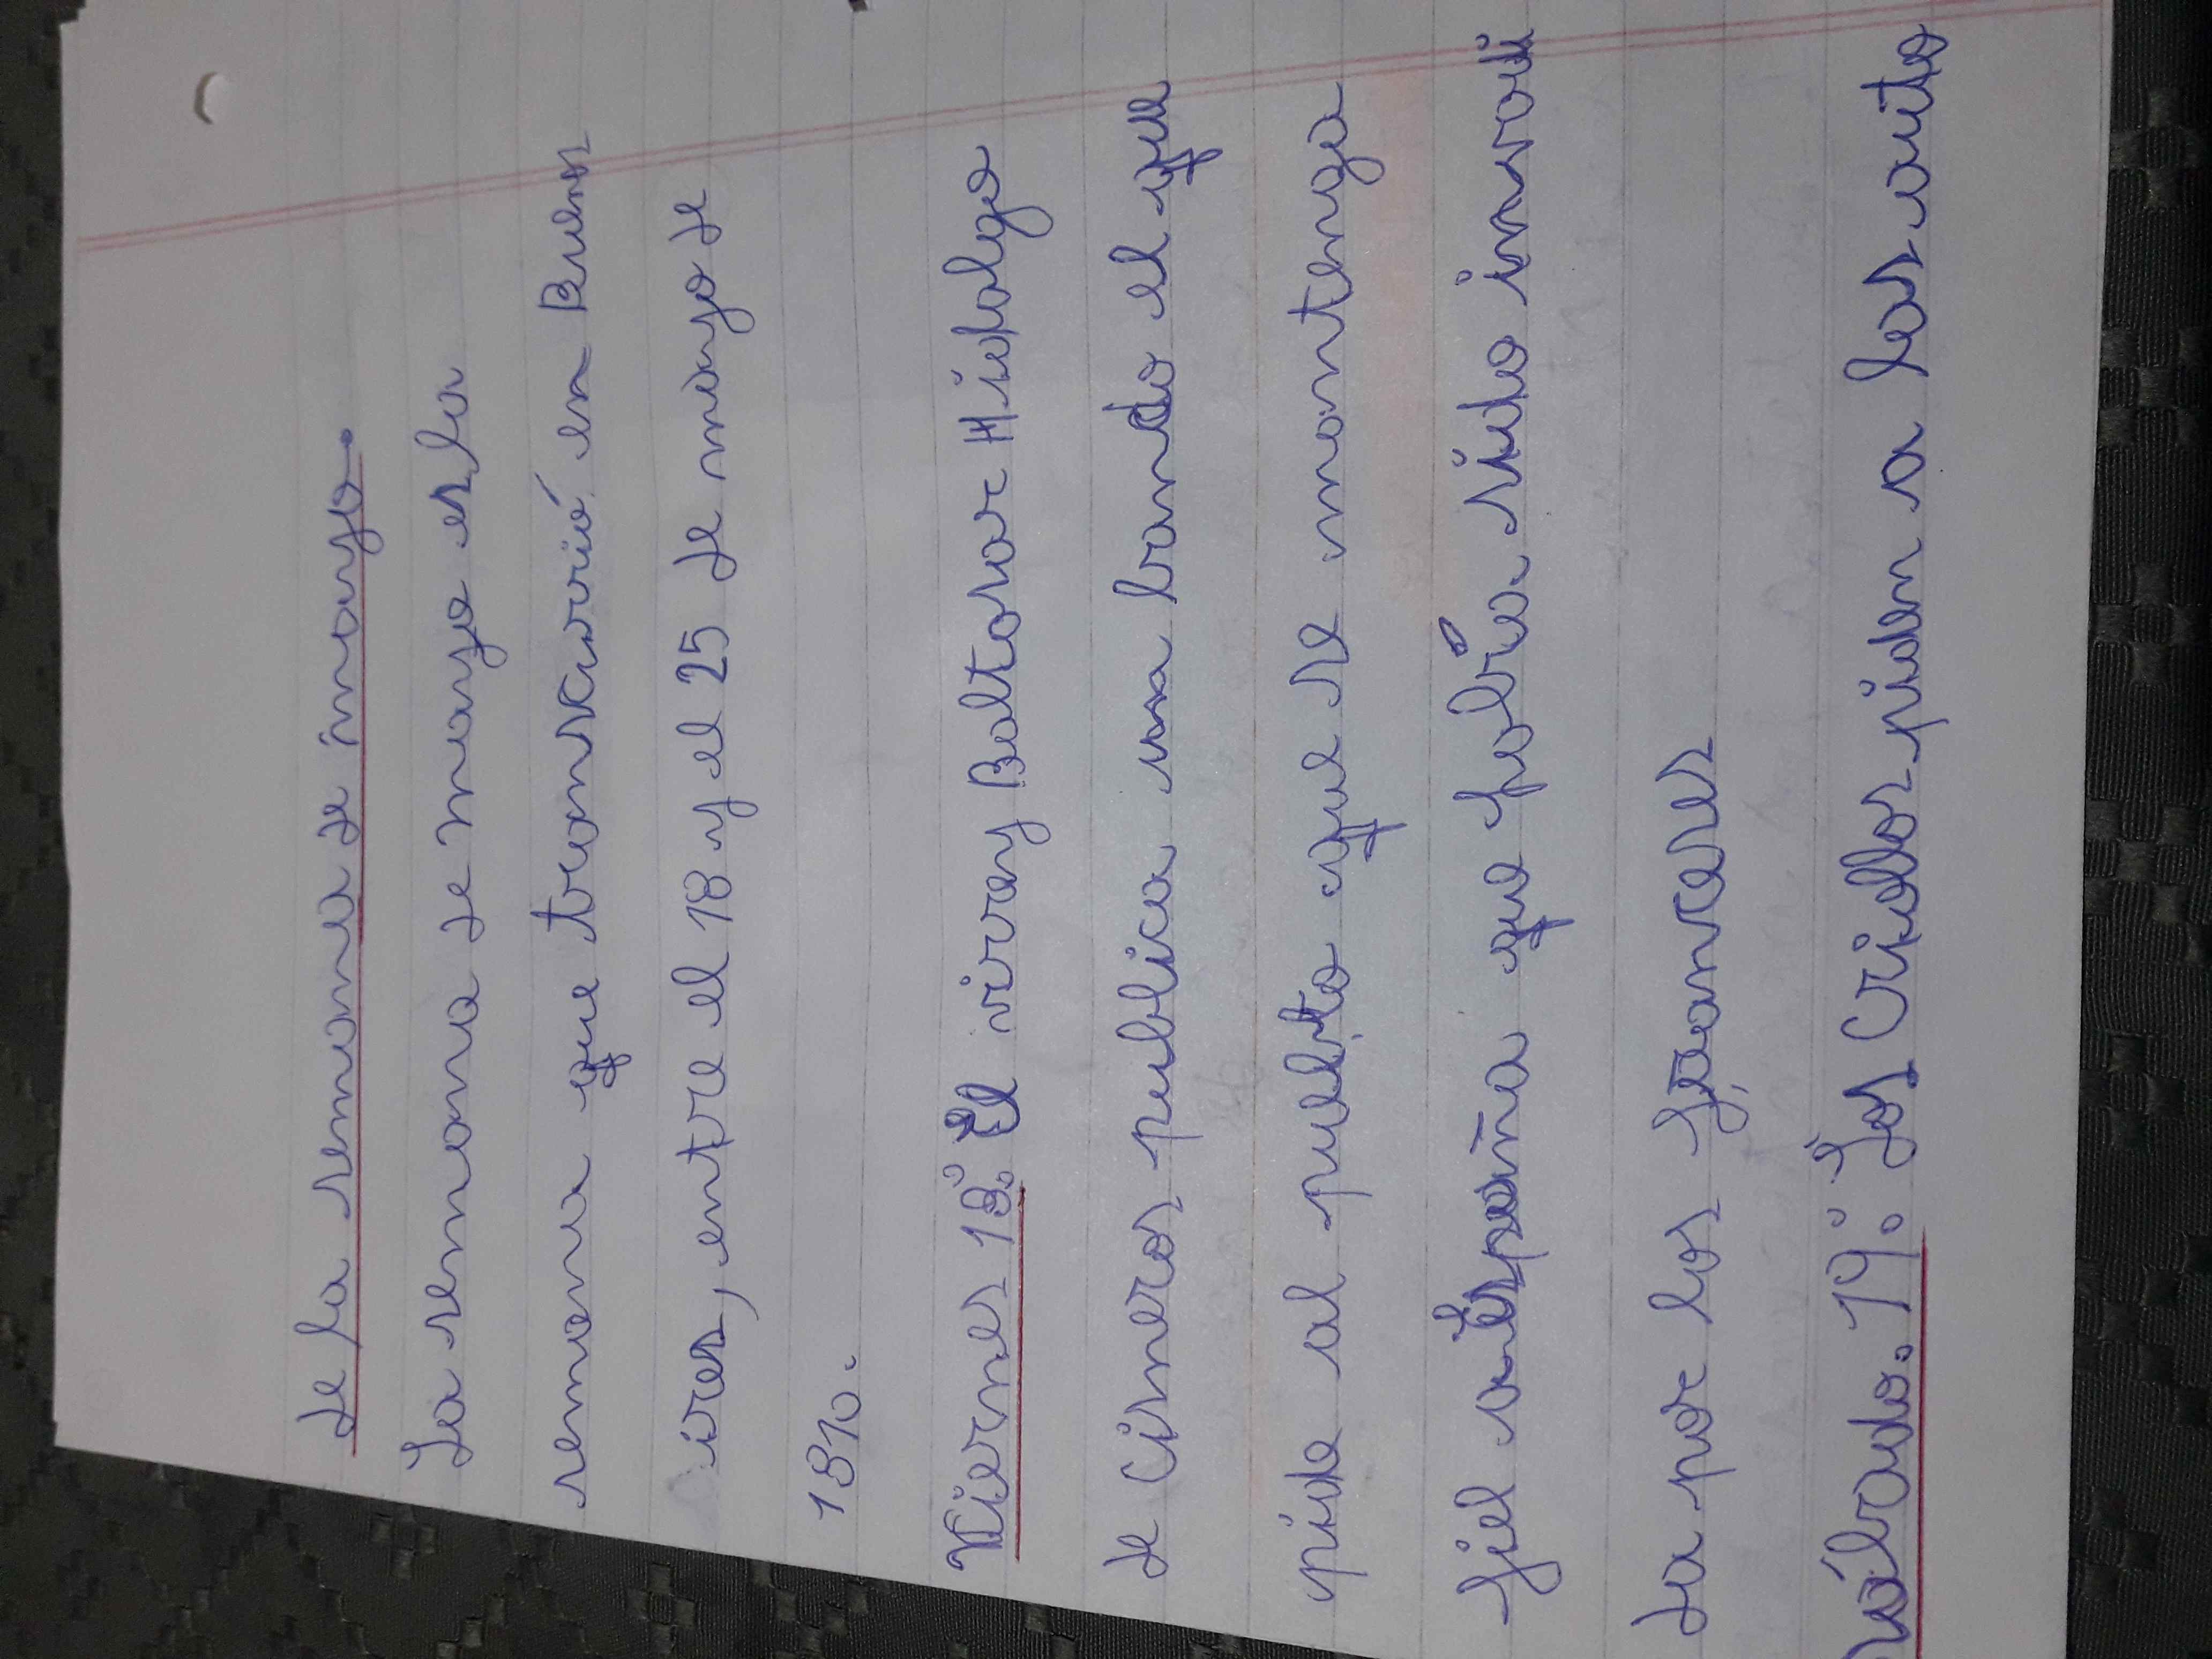 de la semana de mayo.
La semana de mayo es la
semana que transcurrió en Buenos
ires, entre el 18 y el 25 de mayo de
1810.
Viernes 18: El virrey Baltasar Hidalgo
de Cisneros publica una bando el que
pide al pueblo que se mantenga
fiel a España que había sido invadi
da por los franceses
Sábado 19: Los Criollos piden a las auto